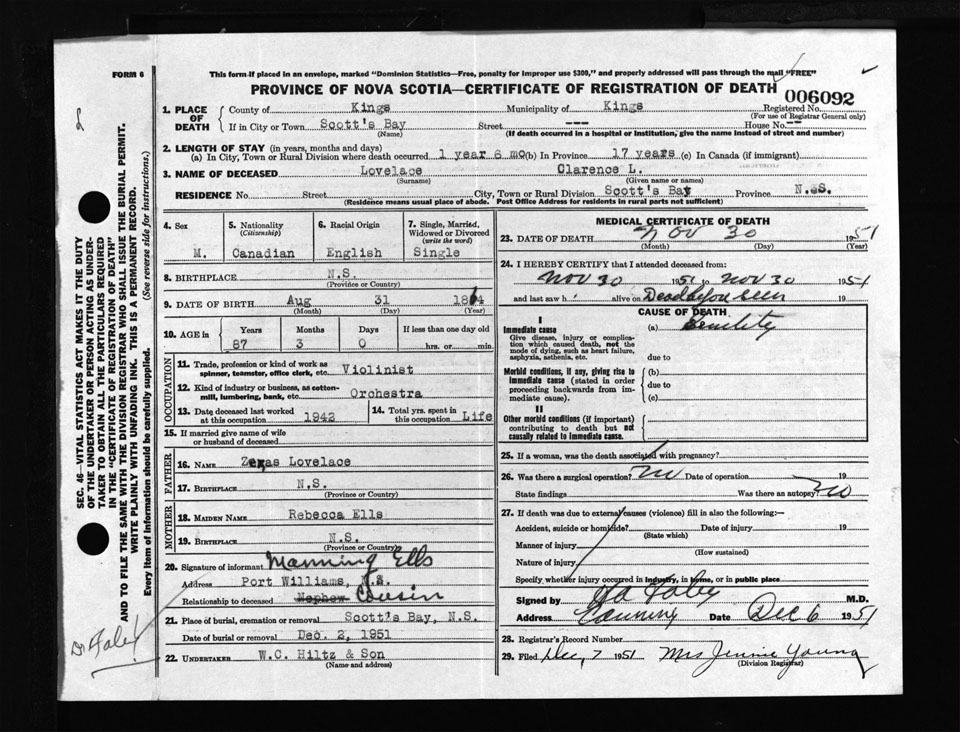 FORM 6
This form if placed in an envelope, marked "Dominion Statistics—Free, penalty for improper use $300," and properly addressed will pass through the mail "FREE"
PROVINCE OF NOVA SCOTIA—CERTIFICATE OF REGISTRATION OF DEATH
006092
Registered No.
(For use of Registrar General only)
1. PLACE OF DEATH
County of Kings Municipality of Kings
If in City or Town Scott's Bay Street --- House No. --
(Name) (If death occurred in a hospital or institution, give the name instead of street and number)
2. LENGTH OF STAY (in years, months and days)
(a) In City, Town or Rural Division where death occurred 1 year 6 mo (b) In Province 17 years (c) In Canada (if immigrant)
3. NAME OF DECEASED Lovelace Clarence L.
(Surname) (Given name or names)
RESIDENCE No. Street City, Town or Rural Division Scott's Bay Province N.S.
(Residence means usual place of abode. Post Office Address for residents in rural parts not sufficient)
4. Sex M.
5. Nationality (Citizenship) Canadian
6. Racial Origin English
7. Single, Married, Widowed or Divorced (write the word) Single
8. BIRTHPLACE N.S.
(Province or Country)
9. DATE OF BIRTH Aug 31 1864
(Month) (Day) (Year)
10. AGE in Years Months Days If less than one day old
87 3 0 hrs. or min.
OCCUPATION
11. Trade, profession or kind of work as spinner, teamster, office clerk, etc. Violinist
12. Kind of industry or business, as cotton-mill, lumbering, bank, etc. Orchestra
13. Date deceased last worked at this occupation 1942
14. Total yrs. spent in this occupation Life
15. If married give name of wife or husband of deceased
FATHER
16. NAME Lovelace
17. BIRTHPLACE N.S.
(Province or Country)
MOTHER
18. MAIDEN NAME Rebecca Ells
19. BIRTHPLACE N.S.
(Province or Country)
20. Signature of informant Manning Ells
Address Port Williams, N.S.
Relationship to deceased Nephew Cousin
21. Place of burial, cremation or removal Scott's Bay, N.S.
Date of burial or removal Dec. 2, 1951
22. UNDERTAKER W.C. Hiltz & Son
(Name and address)
MEDICAL CERTIFICATE OF DEATH
23. DATE OF DEATH Nov 30 1951
(Month) (Day)
24. I HEREBY CERTIFY that I attended deceased from:
Nov 30 1951 to Nov 30 1951
and last saw h alive on Dead when seen 19
CAUSE OF DEATH
I
Immediate cause
Give disease, injury or complication which caused death, not the mode of dying, such as heart failure, asphyxia, asthenia, etc.
(a) Senility
due to
Morbid conditions, if any, giving rise to immediate cause (stated in order proceeding backwards from immediate cause).
(b)
due to
(c)
II
Other morbid conditions (if important) contributing to death but not causally related to immediate cause.
25. If a woman, was the death associated with pregnancy?
26. Was there a surgical operation? No Date of operation 19
State findings Was there an autopsy? No
27. If death was due to external causes (violence) fill in also the following:—
Accident, suicide or homicide? Date of injury 19
(State which)
Manner of injury
(How sustained)
Nature of injury
Specify whether injury occurred in industry, in home, or in public place
Signed by Foley M.D.
Address Canning Date Dec 6 1951
28. Registrar's Record Number
29. Filed Dec. 7 1951 Mrs Jennie Young
(Division Registrar)
SEC. 46—VITAL STATISTICS ACT MAKES IT THE DUTY
OF THE UNDERTAKER OR PERSON ACTING AS UNDER-
TAKER TO OBTAIN ALL THE PARTICULARS REQUIRED
IN THE "CERTIFICATE OF REGISTRATION OF DEATH"
AND TO FILE THE SAME WITH THE DIVISION REGISTRAR WHO SHALL ISSUE THE BURIAL PERMIT.
WRITE PLAINLY WITH UNFADING INK. THIS IS A PERMANENT RECORD.
Every item of information should be carefully supplied. (See reverse side for instructions.)
Dr Foley